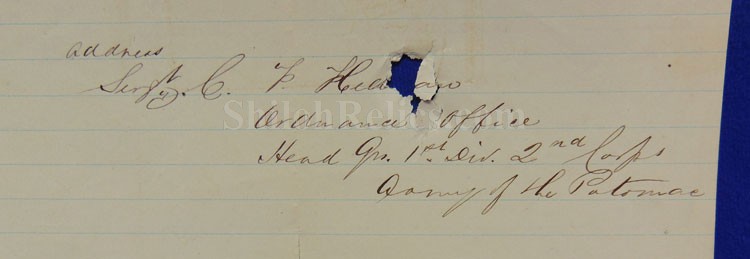 address
Sergt. C. F.
Ordnance Office
Head Qrs. 1st. Div. 2nd Corps
Army of the Potomac
ShilohRelics.com